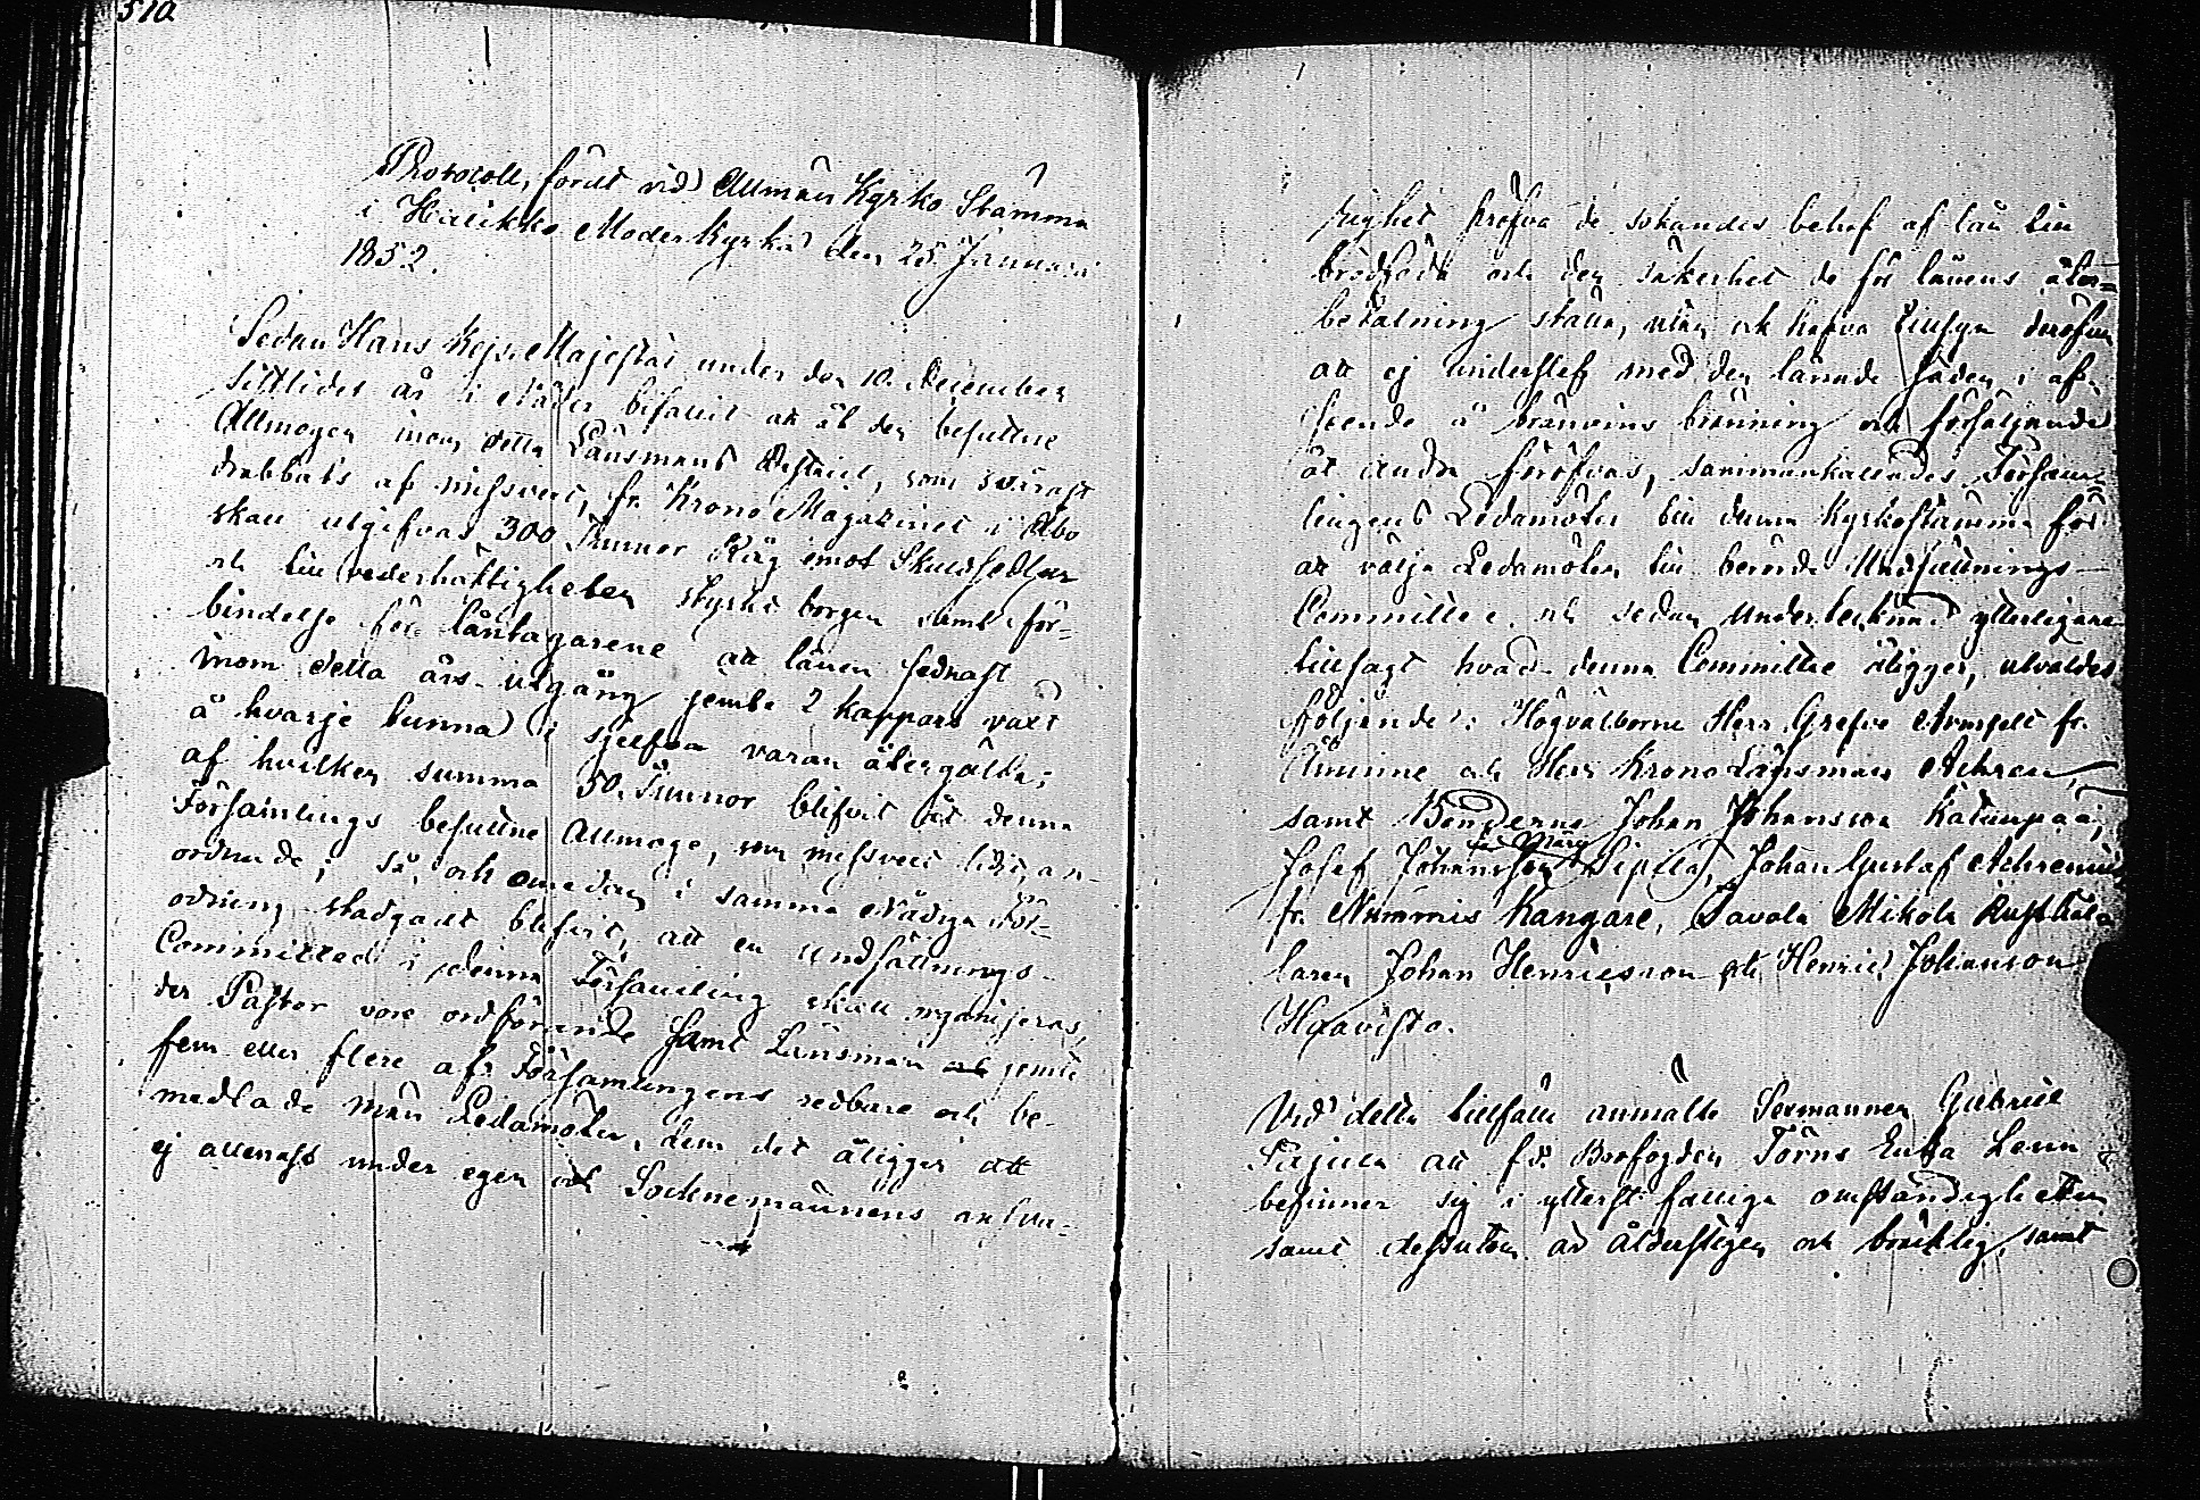 510
Protocoll, fördt vid Allmän Kyrko Stämma
i Halikko Moderkyrka den 25 Januari
1852.
Sedan Hans Kejs. Majestät under den 10. December
sistlidet år i Nåder bifallit att åt den besuttne
Allmogen inom detta Länsmans District, som svårast
drabbats af missvext, fr. Krono Magazinet i Åbo
skall utgifvas 300 Tunnor Råg emot Skuldsedlar
och till vederhäftigheten styrkt borgen samt för-
bindelse för låntagarene att lånen sednast
inom detta års utgång jemte 2 kappars växt
å hvarje tunna i sjelfva varan återgälda;
af hvilken summa 50. Tunnor blifvit åt denna
Församlings besuttne Allmoge, som missvext lidit, an-
ordnade; så, och emedan i samma Nådiga För-
ordning stadgadt blifvit, att en Undsättnings-
Committee i denna Församling skall organiseras,
der Pastor vore ordförande samt Länsman och jemte
fem eller flere af Församlingens redbare och be-
medlade män Ledamöter, dem det åligger att
ej allenast under egen och Socknemännens ansva-
righet pröfva de sökandes behof af lån till
brödföda och den säkerhet de för lånens åter-
betalning ställa, utan och hafva tillsyn deröfver
att ej underslef med den lånade säden i af-
seende å bränvins bränning och försäljande
åt andra föröfvas, sammankallades Försam-
lingens Ledamöter till denna Kyrkostämma för
att välja Ledamöter till berörde Undsättnings-
Committee, och sedan undertecknad ytterligare
tillsagt hvad denna Committee åligger, utvaldes
följande: Högvälborne Herr Grefve Armfelt fr.
Åminne och Herr Krono Länsman Achren,
samt Bönderne Johan Johansson Katunpää,
Josef Johansson Sipilä, Johan Gustaf Achrenius
fr. Nummis Kangare, Tavola Mikola Rusthål-
laren Johan Henricsson och Henric Johansson
Hajavista.
Vid detta tillfälle anmälte Sexmannen Gabriel
att f.d. Borfogden Törns Enka Lena
befinner sig i ytterst fattiga omständigheter
samt dessutom är ålderstigen och bräcklig, samt